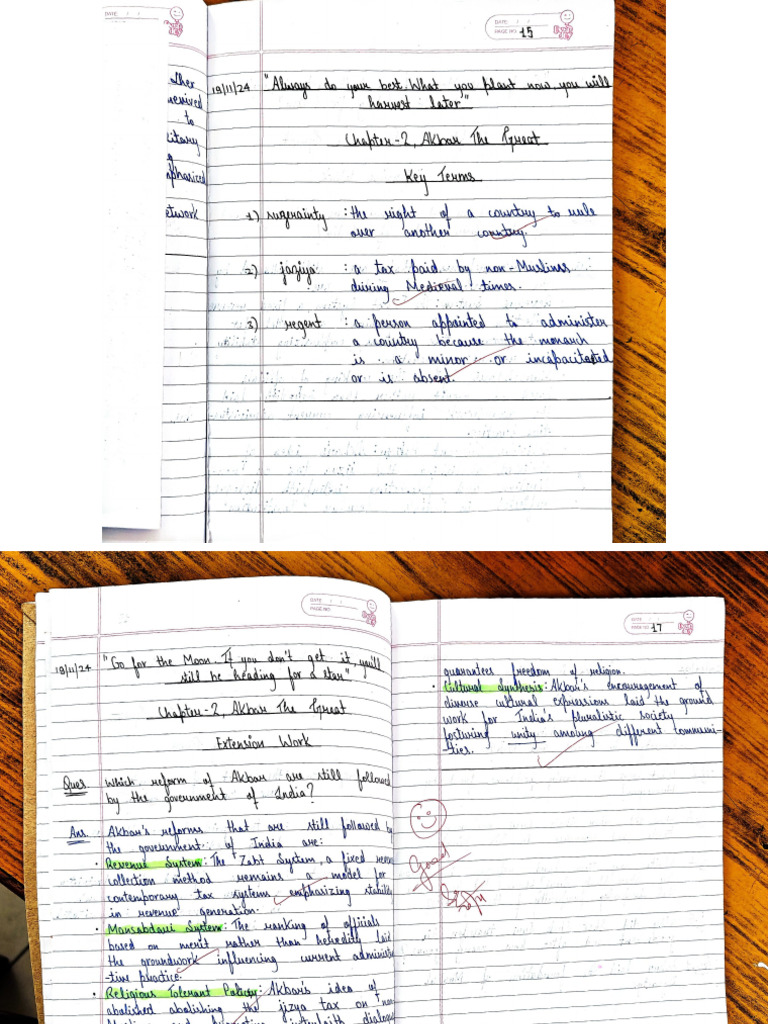 DATE / /
DATE / /
PAGE NO. 15
ther
to
litary
emphasized
etwork
19/11/24 "Always do your best. What you plant now, you will
harvest later"
Chapter-2, Akbar The Great
Key Terms
1) suzerainty : the right of a country to rule
over another country.
2) jaziya : a tax paid by non-Muslims
during Medieval times.
3) regent : a person appointed to administer
a country because the monarch
is a minor or incapacitated
or is absent.
DATE / /
PAGE NO.
19/11/24 "Go for the Moon. If you don't get it, you'll
still be heading for a star"
Chapter-2, Akbar The Great
Extension Work
Ques. Which reform of Akbar are still followed
by the government of India?
Ans. Akbar's reforms that are still followed by
the government of India are:
• Revenue System: The Zabt System, a fixed
collection method remains a model for
contemporary tax systems emphasizing
in revenue generation.
• Mansabdari System: The ranking of officials
based on merit rather than heredity laid
the groundwork influencing current
tive practice.
• Religious Tolerant Policy: Akbar's idea of
abolished abolishing the jizya tax on
DATE
PAGE NO. 17
guarantees freedom of religion.
• Cultural Synthesis: Akbar's encouragement of
diverse cultural expressions laid the ground
work for India's pluralistic society
fosturing unity amoung different communi-
ties.
Good